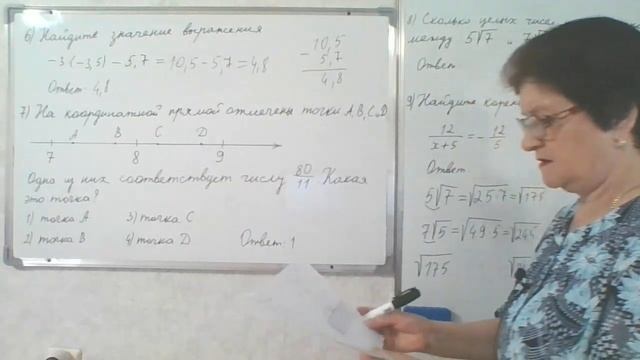 6) Найдите значение выражения
-3·(-3,5) - 5,7 = 10,5 - 5,7 = 4,8
Ответ: 4,8
10,5
- 5,7
4,8
7) На координатной прямой отмечены точки A, B, C, D.
A B C D
7 8 9
Одна из них соответствует числу 80/11. Какая
это точка?
1) точка A 3) точка C
2) точка B 4) точка D Ответ: 1
8) Сколько целых чисел
между 5√7 и 7√
Ответ
9) Найдите корень
12/x+5 = - 12/5
Ответ
5√7 = √25·7 = √175
7√5 = √49·5 = √245
√175